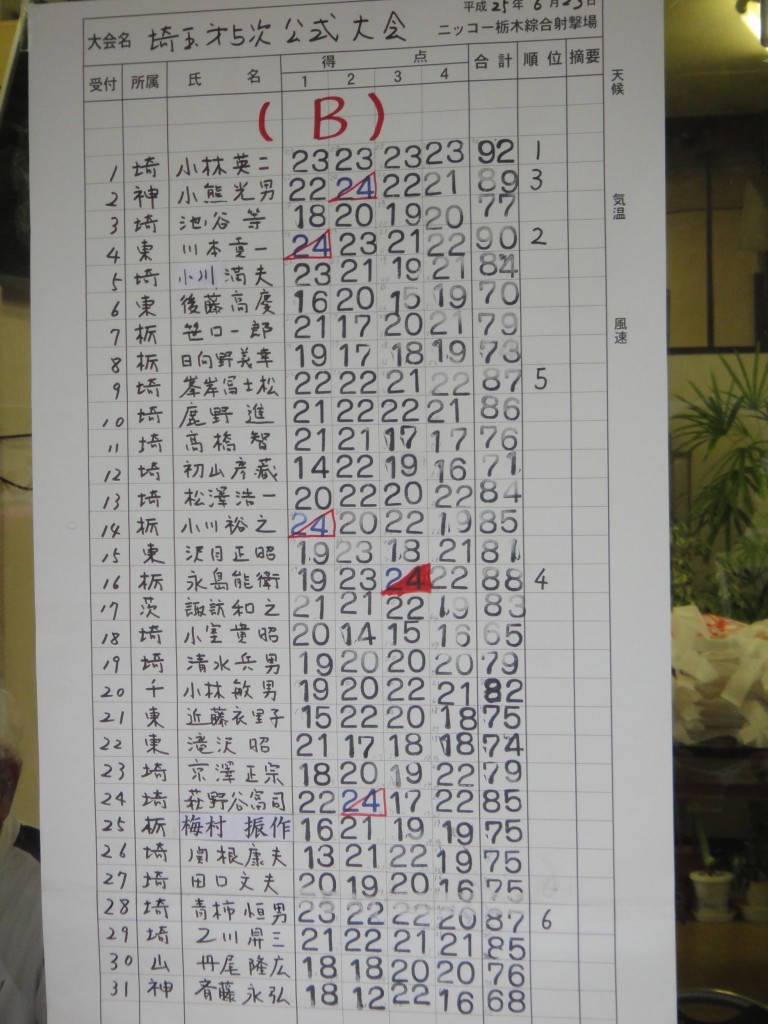 平成25年6月23日
大会名 埼玉才5次公式大会 ニッコー栃木綜合射撃場
受付 所属 氏名 得点 1 2 3 4 合計 順位 摘要
天候
(B)
1 埼 小林英二 23 23 23 23 92 1
2 神 小熊光男 22 24 22 21 89 3
気温
3 埼 池谷等 18 20 19 20 77
4 東 川本重一 24 23 21 22 90 2
5 埼 小川満夫 23 21 19 21 84
6 東 後藤高慶 16 20 15 19 70
風速
7 栃 笹口一郎 21 17 20 21 79
8 栃 日向野義幸 19 17 18 19 73
9 埼 峯岸冨士松 22 22 21 22 87 5
10 埼 鹿野進 21 22 22 21 86
11 埼 髙橋智 21 21 17 17 76
12 埼 初山彦蔵 14 22 19 16 71
13 埼 松澤浩一 20 22 20 22 84
14 栃 小川裕之 24 20 22 19 85
15 東 沢目正昭 19 23 18 21 81
16 栃 永島能衛 19 23 24 22 88 4
17 茨 諏訪和之 21 21 22 19 83
18 埼 小室重昭 20 14 15 16 65
19 埼 清水兵男 19 20 20 20 79
20 千 小林敏男 19 20 22 21 82
21 東 近藤衣里子 15 22 20 18 75
22 東 滝沢昭 21 17 18 18 74
23 埼 京澤正宗 18 20 19 22 79
24 埼 萩野谷富司 22 24 17 22 85
25 栃 梅村振作 16 21 19 19 75
26 埼 関根康夫 13 21 22 19 75
27 埼 田口文夫 20 19 20 16 75
28 埼 青柿恒男 23 22 22 20 87 6
29 埼 乙川昇三 21 22 21 21 85
30 山 丹尾隆広 18 18 20 20 76
31 神 斉藤永弘 18 12 22 16 68